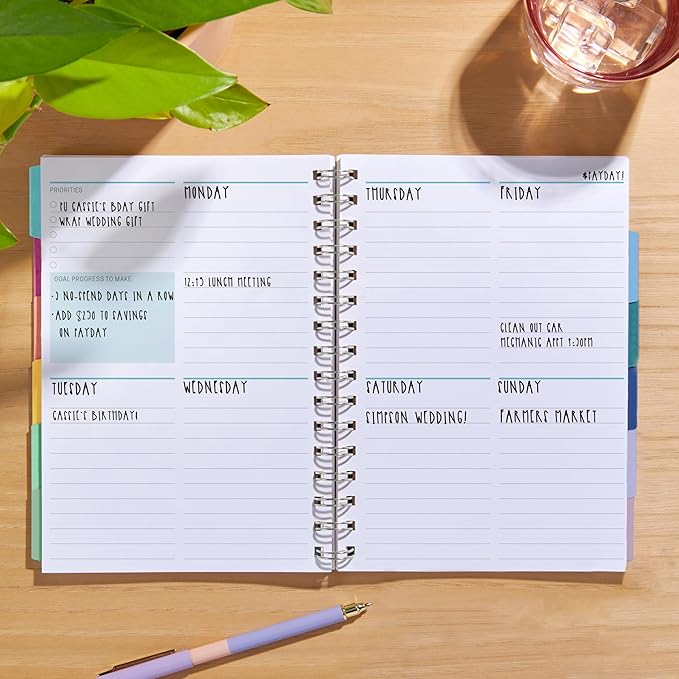 PRIORITIES
PU CASSIE'S BDAY GIFT
WRAP WEDDING GIFT
GOAL PROGRESS TO MAKE
-3 NO-SPEND DAYS IN A ROW
-ADD $250 TO SAVINGS
ON PAYDAY
MONDAY
LUNCH MEETING
TUESDAY
CASSIE'S BIRTHDAY!
WEDNESDAY
THURSDAY
$PAYDAY!
FRIDAY
CLEAN OUT CAR
MECHANIC APPT 1:30PM
SATURDAY
SIMPSON WEDDING!
SUNDAY
FARMERS MARKET